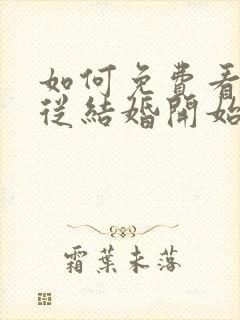 如何免費看
從結婚開始
霜葉未落